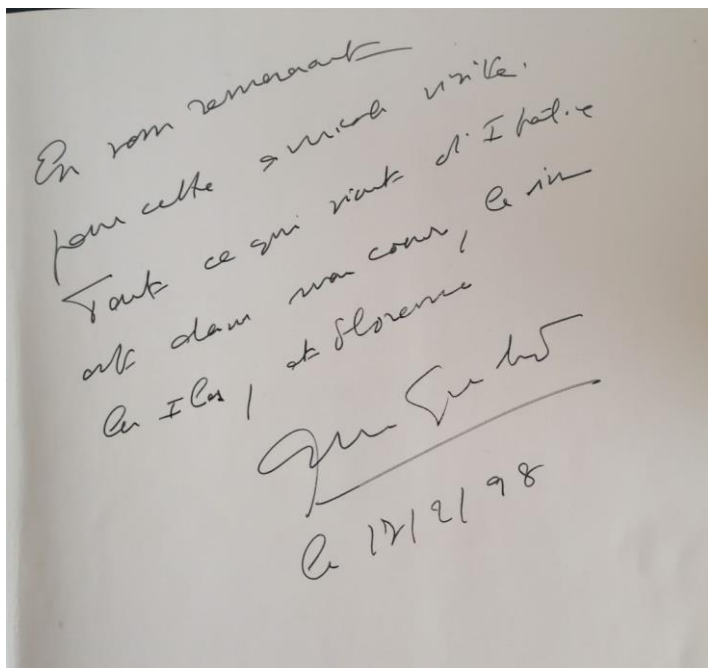 En vous remerciant
pour cette amicale visite.
Tout ce qui vient d'Italie
est dans mon coeur, le vin
les Iles, et Florence
le 17/2/98